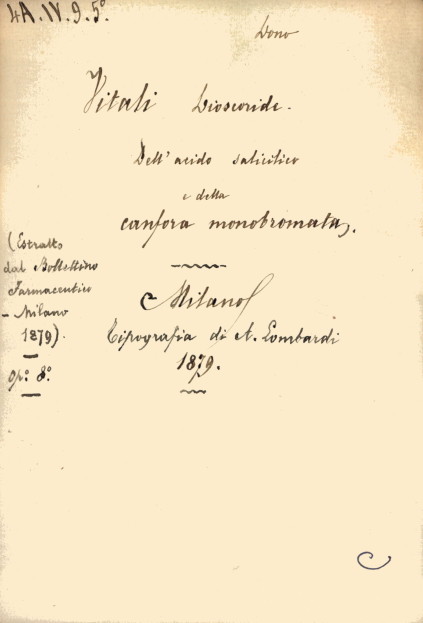 4A.IV.9.5°
Dono
Vitali Dioscoride.
Dell' acido salicilico
e della
canfora monobromata.
(Estratto
dal Bollettino
Farmaceutico
- Milano
1879).
Op.° 8.°
Milano
Tipografia di A. Lombardi
1879.